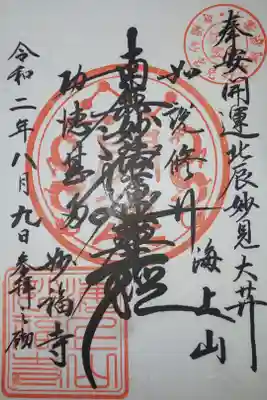 奉安開運北辰妙見大井
海上山
如説修行
南無妙法蓮華経
功徳甚多
妙福寺
令和二年八月九日参拝之砌